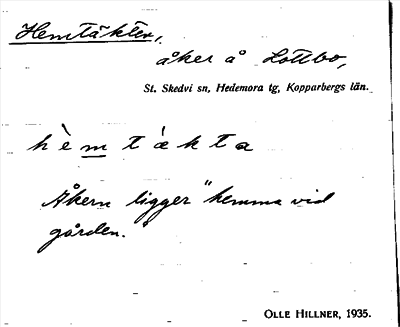 Hemtäkten,
åker å Lottbo,
St. Skedvi sn, Hedemora tg, Kopparbergs län.
hèmtàkta
Åkern ligger "hemma vid
gården.
OLLE HILLNER, 1935.